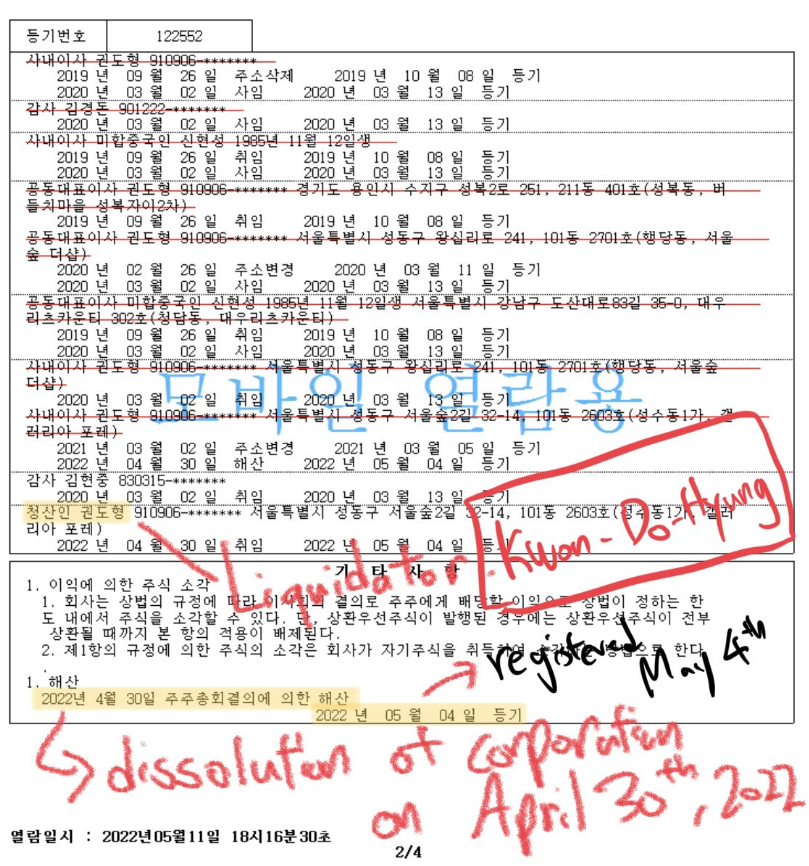 등기번호 122552
사내이사 권도형 910906-*******
2019 년 09 월 26 일 주소삭제 2019 년 10 월 08 일 등기
2020 년 03 월 02 일 사임 2020 년 03 월 13 일 등기
감사 김경돈 901222-*******
2020 년 03 월 02 일 사임 2020 년 03 월 13 일 등기
사내이사 미합중국인 신현성 1985년 11월 12일생
2019 년 09 월 26 일 취임 2019 년 10 월 08 일 등기
2020 년 03 월 02 일 사임 2020 년 03 월 13 일 등기
공동대표이사 권도형 910906-******* 경기도 용인시 수지구 성복2로 251, 211동 401호(성복동, 버
들치마을 성복자이2차)
2019 년 09 월 26 일 취임 2019 년 10 월 08 일 등기
공동대표이사 권도형 910906-******* 서울특별시 성동구 왕십리로 241, 101동 2701호(행당동, 서울
숲 더샵)
2020 년 02 월 26 일 주소변경 2020 년 03 월 11 일 등기
2020 년 03 월 02 일 사임 2020 년 03 월 13 일 등기
공동대표이사 미합중국인 신현성 1985년 11월 12일생 서울특별시 강남구 도산대로83길 35-0, 대우
리츠카운티 302호(청담동, 대우리츠카운티)
2019 년 09 월 26 일 취임 2019 년 10 월 08 일 등기
2020 년 03 월 02 일 사임 2020 년 03 월 13 일 등기
사내이사 권도형 910906-******* 서울특별시 성동구 왕십리로 241, 101동 2701호(행당동, 서울숲
더샵)
모바일 열람용
2020 년 03 월 02 일 취임 2020 년 03 월 13 일 등기
사내이사 권도형 910906-******* 서울특별시 성동구 서울숲2길 32-14, 101동 2603호(성수동1가, 갤
러리아 포레)
2021 년 03 월 02 일 주소변경 2021 년 03 월 05 일 등기
2022 년 04 월 30 일 해산 2022 년 05 월 04 일 등기
감사 김현중 830315-*******
2020 년 03 월 02 일 취임 2020 년 03 월 13 일 등기
청산인 권도형 910906-******* 서울특별시 성동구 서울숲2길 32-14, 101동 2603호(성수동1가, 갤러
리아 포레)
2022 년 04 월 30 일 취임 2022 년 05 월 04 일 등기
Liquidator. Kwon-Do-Hyung
기 타 사 항
1. 이익에 의한 주식 소각
1. 회사는 상법의 규정에 따라 이사회의 결의로 주주에게 배당할 이익으로 상법이 정하는 한
도 내에서 주식을 소각할 수 있다. 단, 상환우선주식이 발행된 경우에는 상환우선주식이 전부
상환될 때까지 본 항의 적용이 배제된다.
2. 제1항의 규정에 의한 주식의 소각은 회사가 자기주식을 취득하여 한다
.
registered May 4th
1. 해산
2022년 4월 30일 주주총회결의에 의한 해산
2022 년 05 월 04 일 등기
dissolution of corporation
on April 30th, 2022
열람일시 : 2022년05월11일 18시16분30초
2/4